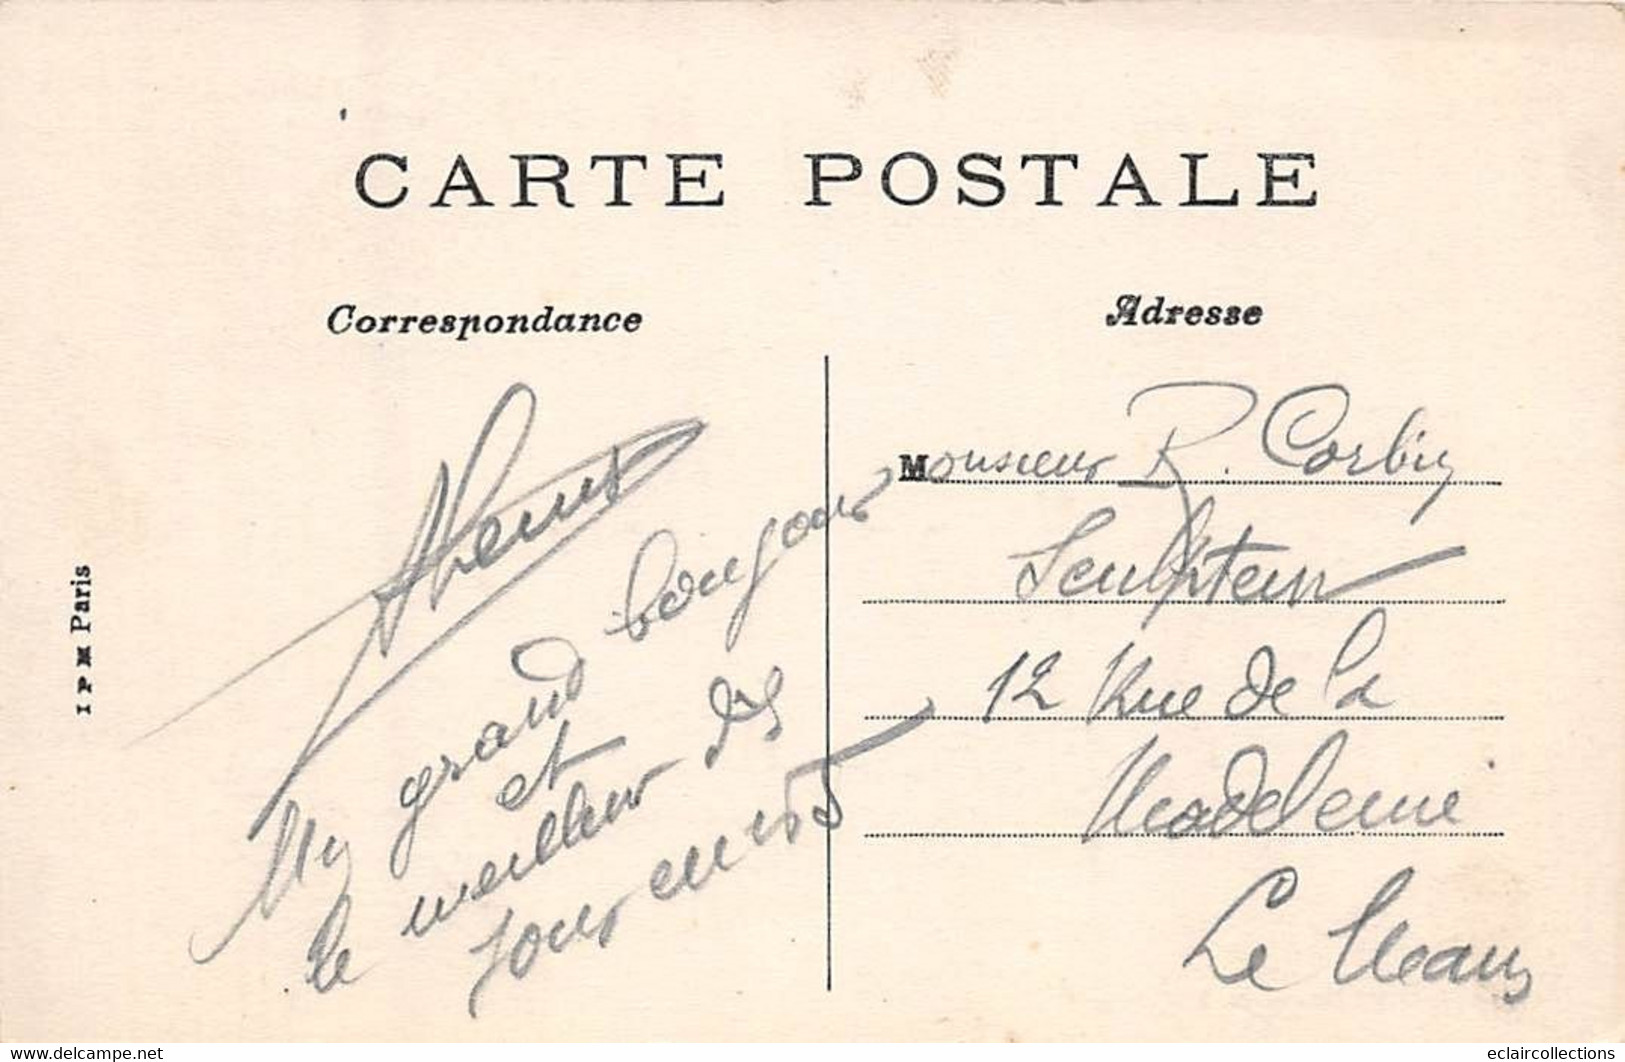 CARTE POSTALE
Correspondance
Un
grand bonjour
et
le meilleur des
souvenirs
Adresse
Monsieur R. Corbin
Sculpteur
12 Rue de la
Madeleine
Le Mans
I P M Paris
www.delcampe.net
eclaircollections